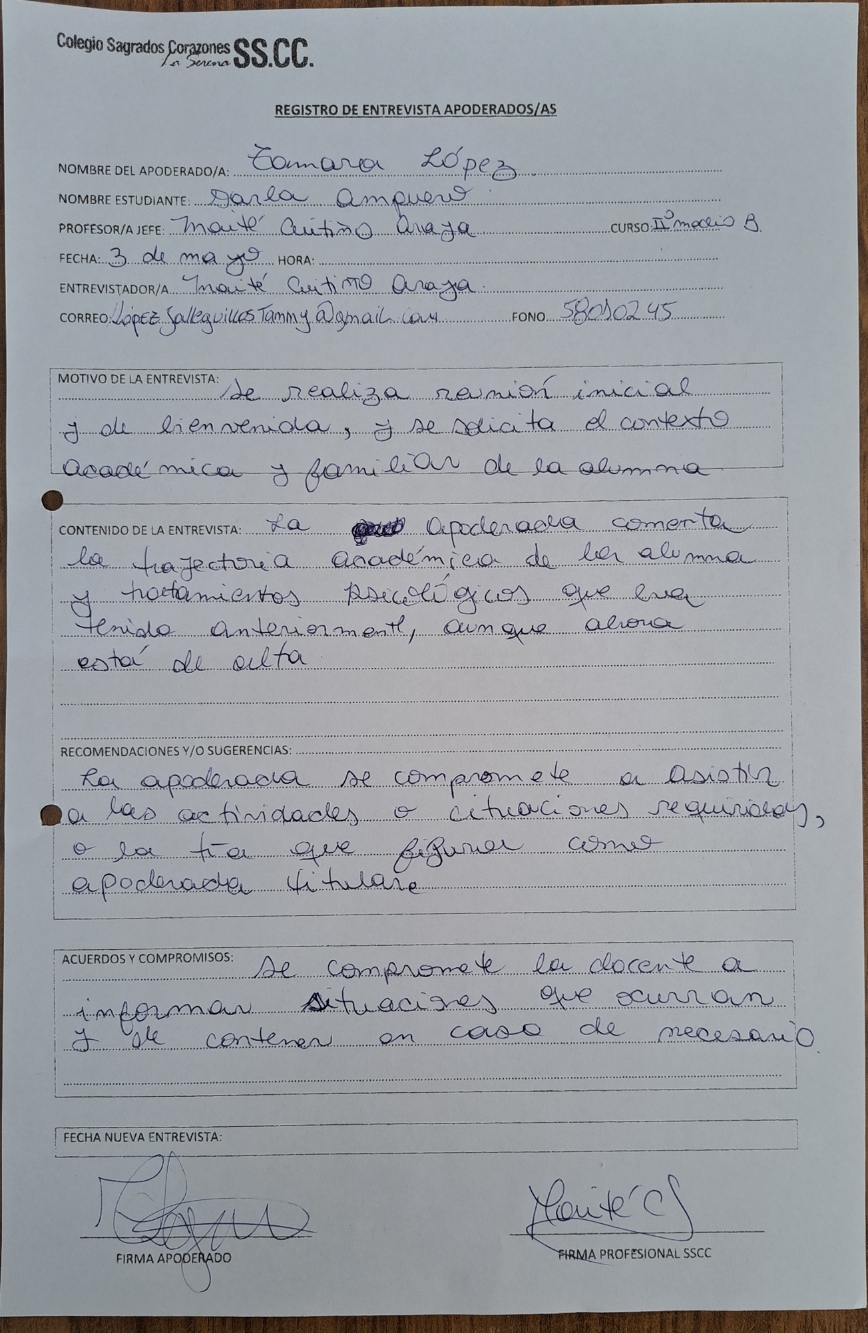 Colegio Sagrados Corazones SS.CC.
La Serena
REGISTRO DE ENTREVISTA APODERADOS/AS
NOMBRE DEL APODERADO/A: Tamara López
NOMBRE ESTUDIANTE: Darla Ampuero
PROFESOR/A JEFE: Maité Cutiño Araya CURSO: IIº medio B.
FECHA: 3 de mayo HORA:
ENTREVISTADOR/A Maité Cutiño Araya.
CORREO: LópezGalleguillosTammy@gmail.com FONO 58010245
MOTIVO DE LA ENTREVISTA: Se realiza reunión inicial
y de bienvenida, y se solicita el contexto
académica y familiar de la alumna
CONTENIDO DE LA ENTREVISTA: La apoderada comenta
la trajectoria académica de la alumna
y tratamientos psicológicos que ha
tenido anteriormente, aunque ahora
está de alta
RECOMENDACIONES Y/O SUGERENCIAS:
La apoderada se compromete a asistir
a las actividades o cituaciones requiridas,
o la tía que figura como
apoderada titular
ACUERDOS Y COMPROMISOS: Se compromete la docente a
informar situaciones que ocurran
y de contener en caso de necesario
FECHA NUEVA ENTREVISTA:
Maité C
FIRMA APODERADO FIRMA PROFESIONAL SSCC